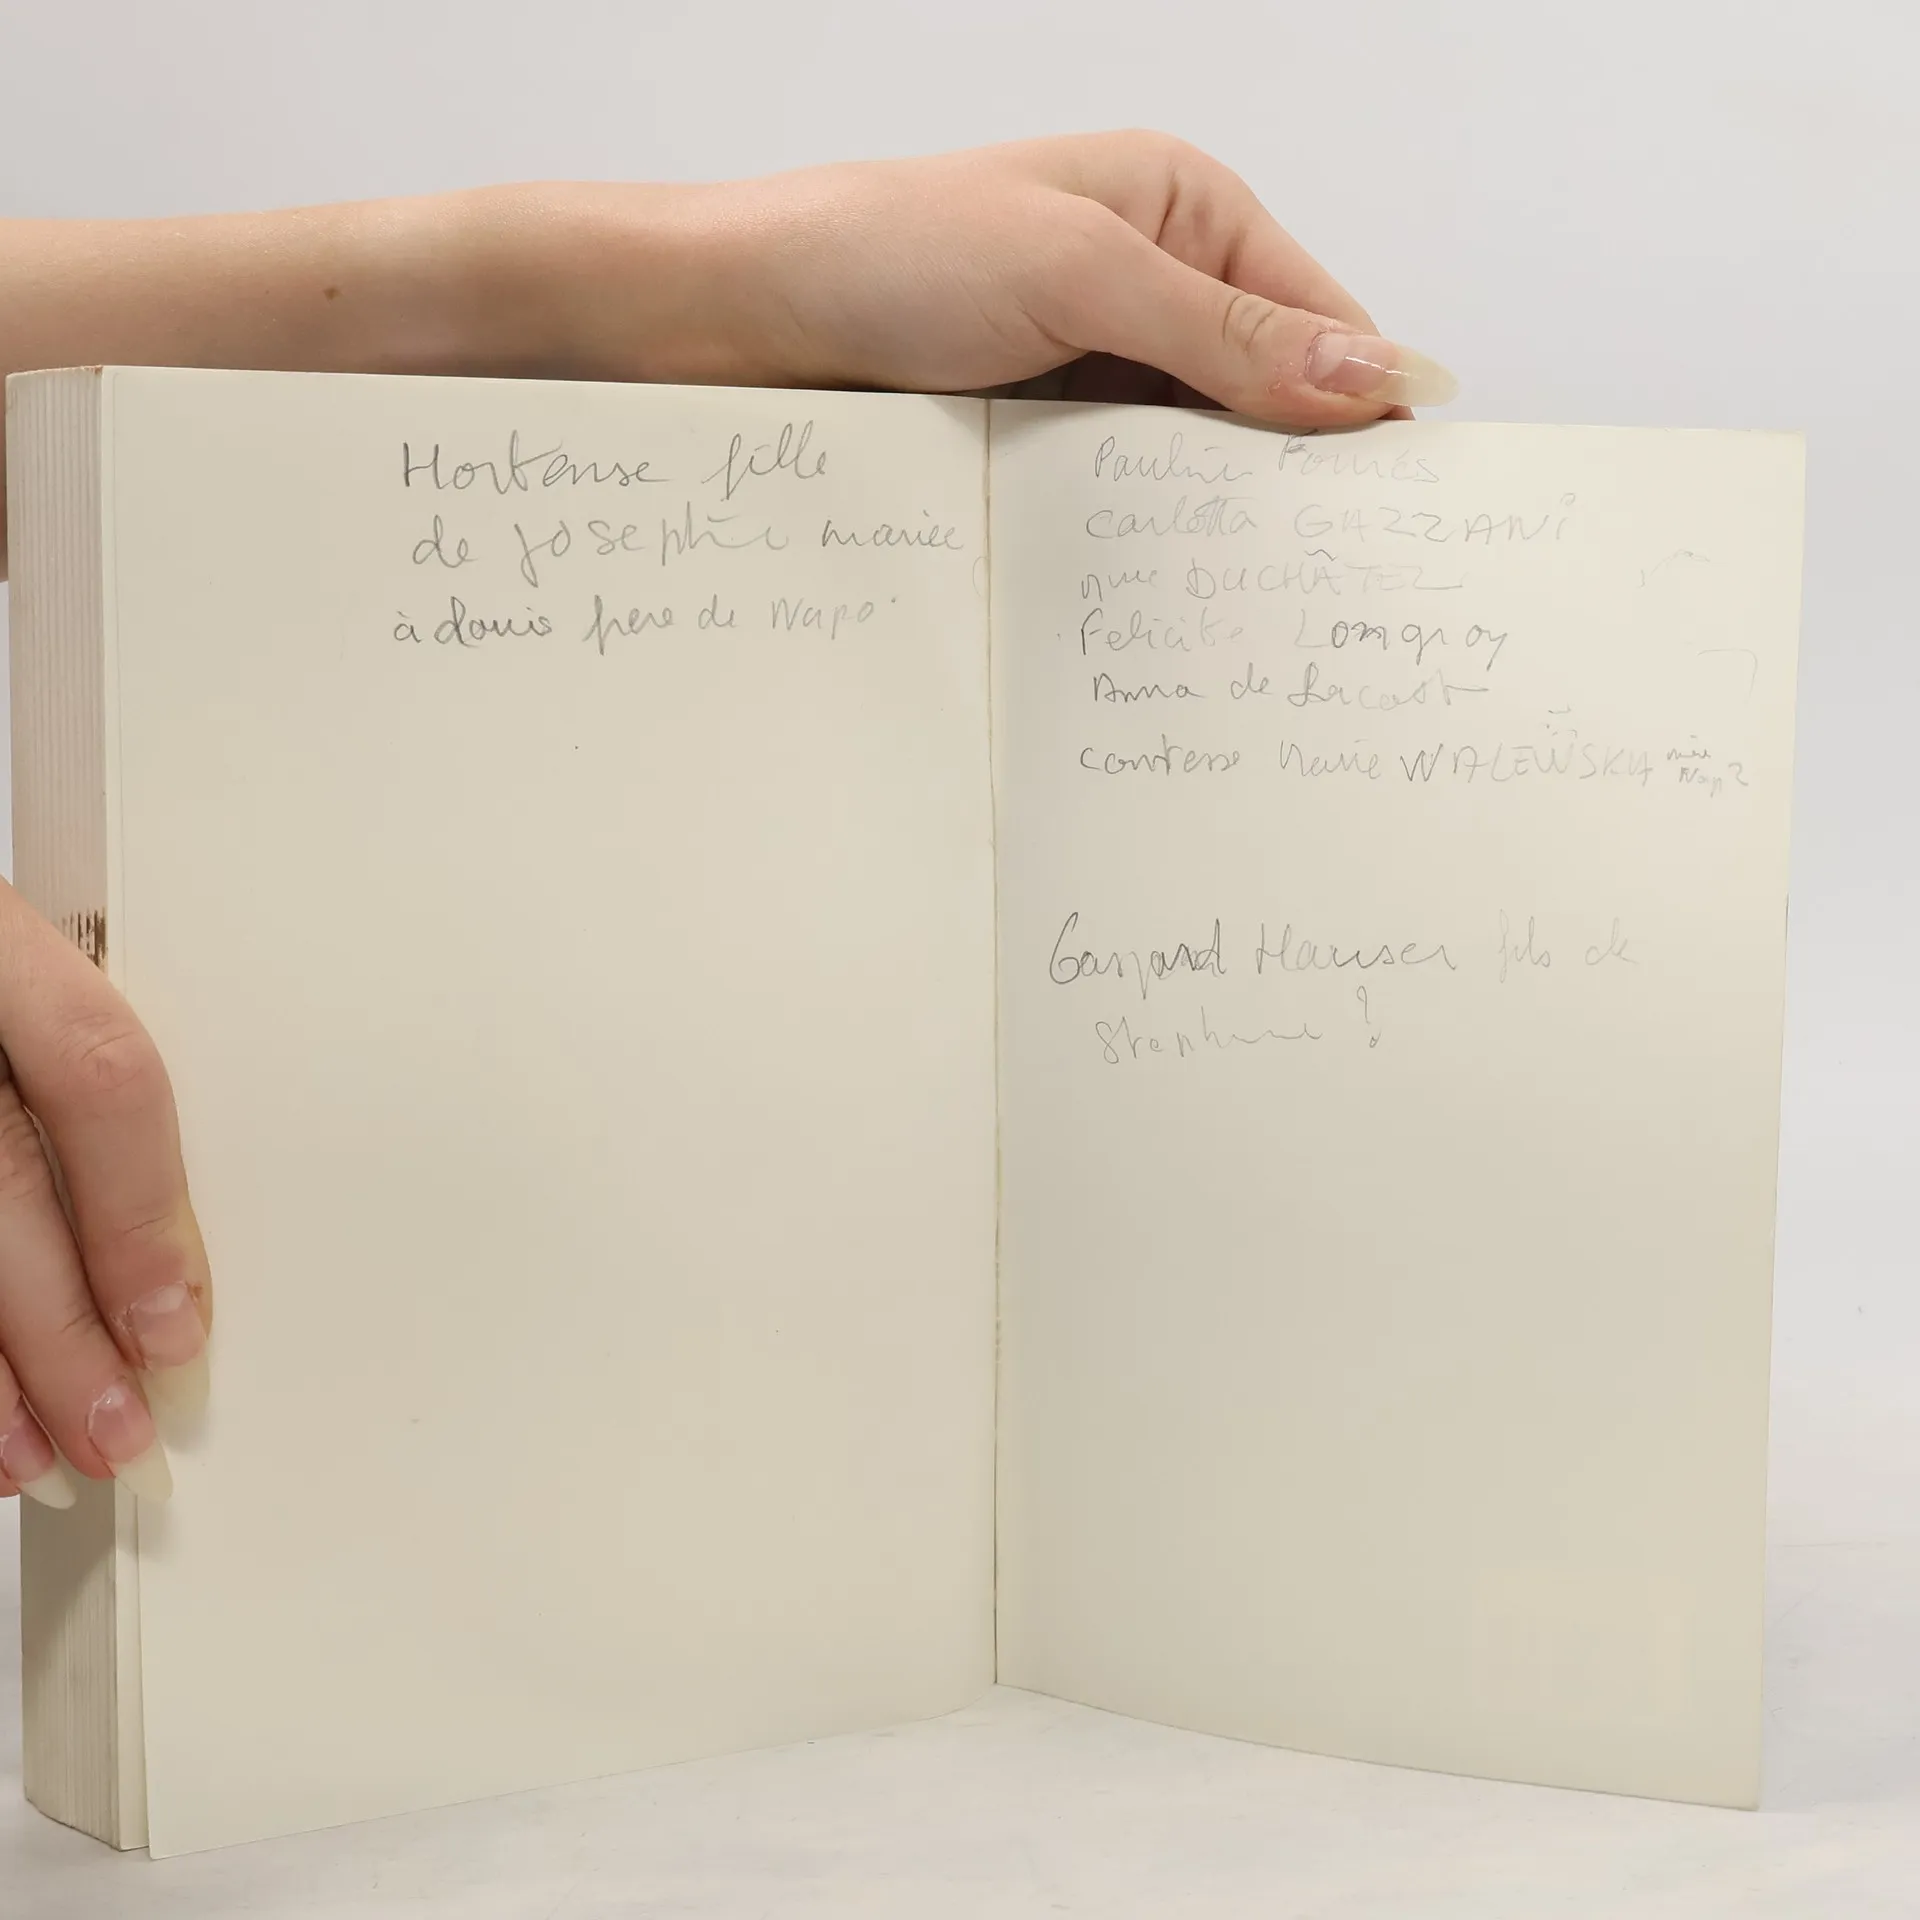 Hortense fille
de Josephine mariée
à Louis frere de Napo
Pauline Fourés
Carlotta GAZZANI
Mme DUCHÂTEL
Felicite Longroy
Anna de Lacoste
comtesse Marie WALEWSKA mère
Nap 2
Gaspard Hauser fils de
Stephanie ?